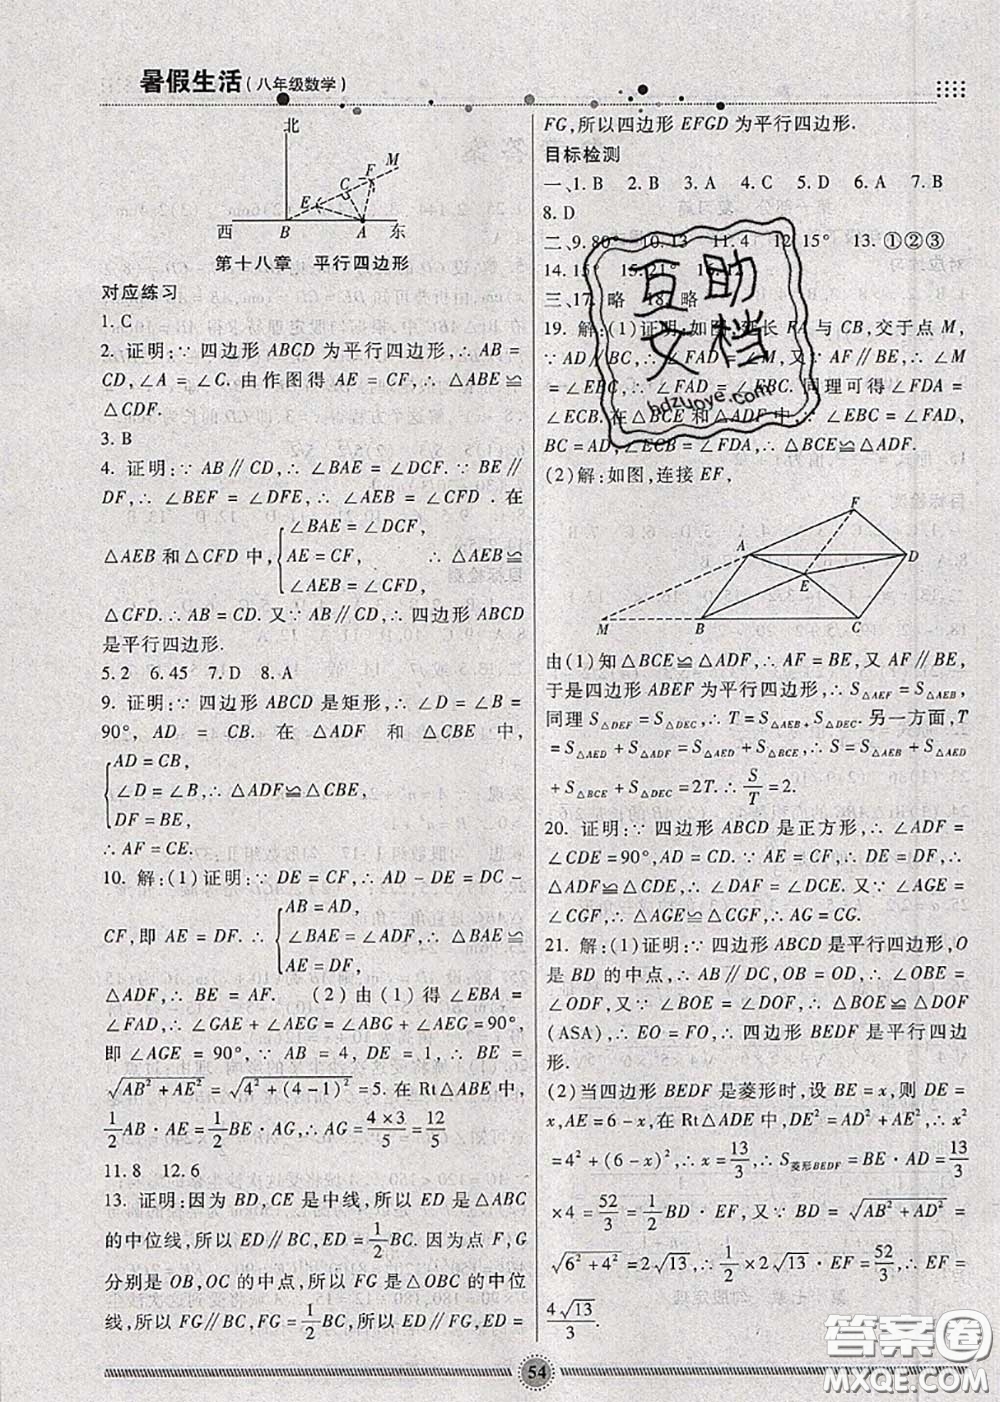 暑假生活(八年级数学)
北
C F M
E
西 B A 东
第十八章 平行四边形
对应练习
1. C
2. 证明:∵ 四边形 ABCD 为平行四边形,∴ AB =
CD,∠A = ∠C. 由作图得 AE = CF,∴ △ABE ≌
△CDF.
3. B
4. 证明:∵ AB∥CD,∴ ∠BAE = ∠DCF. ∵ BE∥
DF,∴ ∠BEF = ∠DFE,∴ ∠AEB = ∠CFD . 在
△AEB 和 △CFD 中, { ∠BAE = ∠DCF, AE = CF, ∠AEB = ∠CFD, ∴ △AEB ≌
△CFD. ∴ AB = CD. 又∵ AB∥CD,∴ 四边形 ABCD
是平行四边形.
5. 2 6. 45 7. D 8. A
9. 证明:∵ 四边形 ABCD 是矩形,∴ ∠D = ∠B =
90°, AD = CB. 在 △ADF 和 △CBE 中,
{ AD = CB, ∠D = ∠B, DF = BE, ∴ △ADF≌△CBE,
∴ AF = CE.
10. 解:(1)证明:∵ DE = CF,∴ AD - DE = DC -
CF,即 AE = DF. ∴ { AB = AD, ∠BAE = ∠ADF, AE = DF, ∴ △BAE ≌
△ADF,∴ BE = AF. (2)由(1)得 ∠EBA =
∠FAD,∴ ∠GAE + ∠AEG = ∠ABG + ∠AEG = 90°,
即 ∠AGE = 90°,∵ AB = 4,DE = 1,∴ BE =
√(AB² + AE²) = √(4² + (4 - 1)²) = 5. 在 Rt△ABE 中,
1/2 AB · AE = 1/2 BE · AG,∴ AG = (4×3)/5 = 12/5.
11. 8 12. 6
13. 证明:因为 BD,CE 是中线,所以 ED 是 △ABC
的中位线,所以 ED∥BC,ED = 1/2 BC. 因为点 F,G
分别是 OB,OC 的中点,所以 FG 是 △OBC 的中位
线,所以 FG∥BC,FG = 1/2 BC,所以 ED∥FG,ED =
FG,所以四边形 EFGD 为平行四边形.
目标检测
一、1. B 2. B 3. A 4. C 5. D 6. A 7. B
8. D
二、9. 80° 10. 13 11. 4 12. 15° 13. ①②③
14. 15° 15. 21° 16. 12
三、17. 略 18. 略
19. 解:(1)证明:如图,延长 FA 与 CB,交于点 M,
∵ AD∥BC,∴ ∠FAD = ∠M,又∵ AF∥BE,∴ ∠M
= ∠EBC,∴ ∠FAD = ∠EBC. 同理可得 ∠FDA =
∠ECB. 在 △BCE 和 △ADF 中,∵ ∠EBC = ∠FAD,
BC = AD,∠ECB = ∠FDA,∴ △BCE≌△ADF.
(2)解:如图,连接 EF,
F
A D
E
M B C
由(1)知 △BCE≌△ADF,∴ AF = BE,又 AF∥BE,
于是四边形 ABEF 为平行四边形,∴ S△AEF = S△AEB,
同理 S△DEF = S△DEC,∴ T = S△AEB + S△DEC. 另一方面,T
= S△AED + S△ADF = S△AED + S△BCE,∴ S = S△AEB + S△AED
+ S△BCE + S△DEC = 2T. ∴ S/T = 2.
20. 证明:∵ 四边形 ABCD 是正方形,∴ ∠ADF =
∠CDE = 90°,AD = CD. ∵ AE = CF,∴ DE = DF,∴
△ADF≌△CDE,∴ ∠DAF = ∠DCE. 又∵ ∠AGE =
∠CGF,∴ △AGE≌△CGF,∴ AG = CG.
21. 解:(1)证明:∵ 四边形 ABCD 是平行四边形,O
是 BD 的中点,∴ AB∥DC,OB = OD,∴ ∠OBE =
∠ODF,又∵ ∠BOE = ∠DOF,∴ △BOE≌△DOF
(ASA),∴ EO = FO,∴ 四边形 BEDF 是平行四边
形.
(2)当四边形 BEDF 是菱形时,设 BE = x,则 DE =
x,AE = 6 - x,在 Rt△ADE 中,DE² = AD² + AE²,∴ x²
= 4² + (6 - x)²,∴ x = 13/3,∴ S菱形BEDF = BE · AD = 13/3
×4 = 52/3 = 1/2 BD · EF,又∵ BD = √(AB² + AD²) =
√(6² + 4²) = 2√13,∴ 1/2 BD · EF = 52/3,∴ EF =
4√13/3.
54
互助
文档
bdzuoye.com
答案卷
MXQE.COM